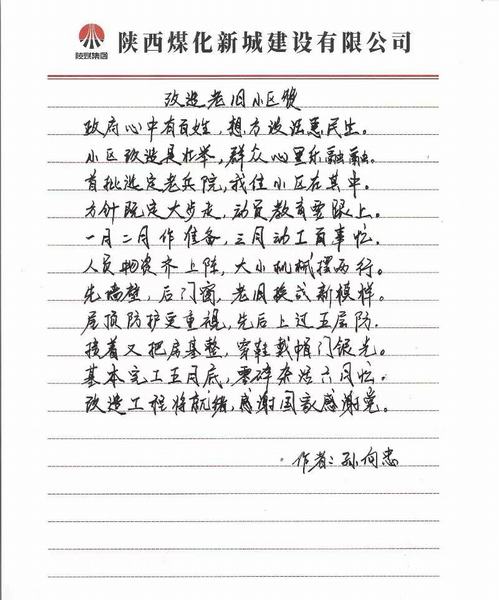 陕煤集团
陕西煤化新城建设有限公司
改造老旧小区赞
政府心中有百姓，想方设法惠民生。
小区改造是壮举，群众心里乐融融。
首批选定老兵院，我住小区在其中。
方针既定大步走，动员教育要跟上。
一月二月作准备，三月动工百事忙。
人员物资齐上阵，大小机械摆两行。
先墙壁，后门窗，老旧换成新模样。
屋顶防护更重视，先后上过五层防。
接着又把房基整，穿鞋戴帽门银光。
基本完工五月底，零碎杂活六月忙。
改造工程将就绪，感谢国家感谢党。
作者：孙向忠